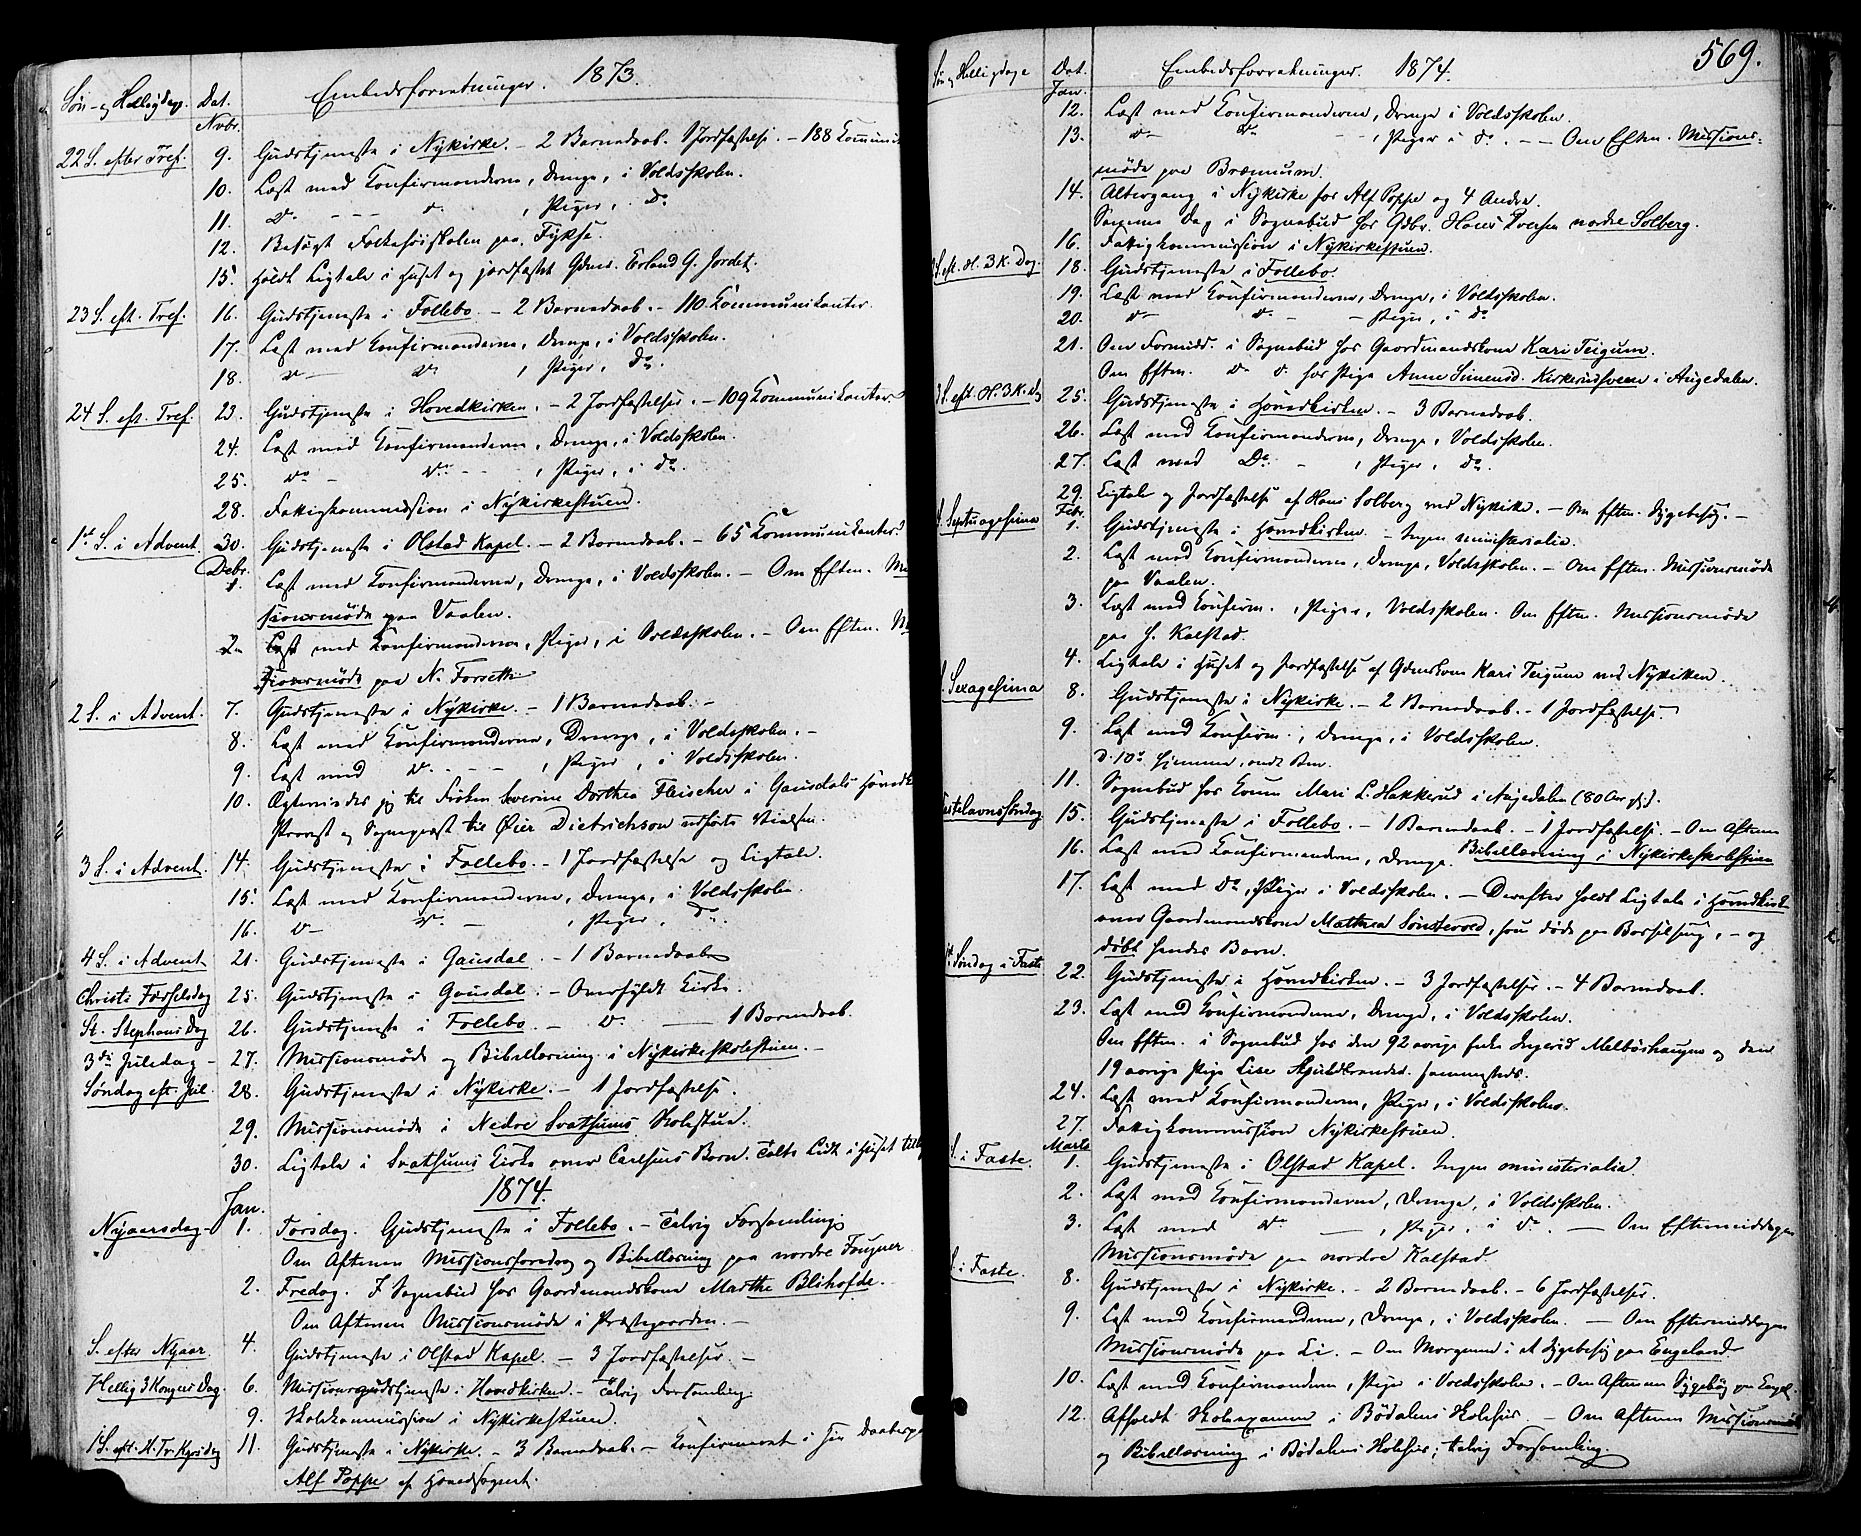 Søn- og Helligdag. Dat. Embedsforretninger. 1873.
Novbr.
22 S. efter Tref. 9. Gudstjeneste i Nykirke. – 2 Barnedaab. 1 Jordfæstelse. – 188 Kommuni
10. Læst med Konfirmanderne, Drenge, i Voldsskolen.
11. do – – – do , Piger, Do
12. Besøgt Folkehøiskolen paa Fykse.
15. Holdt Ligtale i Huset og jordfæstet Gdmd. Erland G. Jordet.
23 S. eft. Tref. 16. Gudstjeneste i Follebo. – 2 Barnedaab. – 110 Kommunikanter.
17. Læst med Konfirmanderne, Drenge, i Voldsskolen.
18. do – do , Piger, Do.
24 S. eft. Tref. 23. Gudstjeneste i Hovedkirken. – 2 Jordfæstelser. – 109 Kommunikanter
24. Læst med Konfirmanderne, Drenge, i Voldsskolen.
25. do – do – – , Piger, i do.
28. Fattigkommission i Nykirkestuen.
1st S. i Advent. 30. Gudstjeneste i Olstad Kapel. – 2 Barnedaab. – 65 Kommunikanter.
Decbr.
1. Læst med Konfirmanderne, Drenge, i Voldsskolen. – Om Efterm. Mis
sionsmøde paa Vaalen.
2. Læst med Konfirmanderne, Piger, i Voldsskolen. – Om Efterm. Mis
sionsmøde paa N. Forseth
2 S. i Advent. 7. Gudstjeneste i Nykirke. – 1 Barnedaab. –
8. Læst med Konfirmanderne, Drenge, i Voldsskolen. –
9. Læst med do. – – – , Piger, i Voldsskolen.
10. Ægteviedes jeg til Frøken Severine Dorthea Fleischer i Gausdals Hovedk
Provst og Sognepræst til Øier Dietrichson udførte Vielsen.
3 S. i Advent. 14. Gudstjeneste i Follebo. – 1 Jordfæstelse og Ligtale.
15. Læst med Konfirmanderne, Drenge, i Voldsskolen.
16. do – do. – , Piger, do.
4 S. i Advent 21. Gudstjeneste i Gausdal. – 1 Barnedaab
Christi Fødselsdag 25. Gudstjeneste i Gausdal. – Overfyldt Kirke.
St. Stephans Dag 26. Gudstjeneste i Follebo. – do. — 1 Barnedaab.
3die Juledag – 27. Missionsmøde og Bibellæsning i Nykirkeskolestuen. –
Søndag eft. Jul 28. Gudstjeneste i Nykirke. – 1 Jordfæstelse.
29. Missionsmøde i Nedre Svatsums Skolestue.
30. Ligtale i Svatsums Kirke over Carlsens Barn. Talte Lidt i Huset till
Jan. 1874.
Nyaarsdag – 1. Torsdag. Gudstjeneste i Follebo. – Talrig Forsamling
Om Aftenen Missionsforedrag og Bibellæsning paa nordre Fougner.
2. Fredag. I Sognebud hos Gaardmandskone Marthe Blihofde.
Om Aftenen Missionsmøde i Præstegaarden. –
S. efter Nyaar. 4. Gudstjeneste i Olstad Kapel. – 3 Jordfæstelser. –
Hellig 3 Kongers Dag. 6. Missionsgudstjeneste i Hovedkirken. – Talrig Forsamling
9. Skolekommission i Nykirkestuen.
1 S. eft. H. Tr. Kgrsdag 11. Gudstjeneste i Nykirke. – 3 Barnedaab. – Konfirmeret i sin Daabspa
Alf Poppe af Hovedsognet.
569.
Søn og Helligdage Dat. Embedsforretninger. 1874.
Jan.
12. Læst med Konfirmanderne, Drenge i Voldsskolen.
13. do – do – – , Piger i do. – – Om Efterm. Missions-
møde paa Brænnum.
14. Altergang i Nykirke for Alf Poppe og 4 Andre.
Samme Dag i Sognebud hos Gdbr. Hans Iversen nordre Solberg.
16. Fattigkommission i Nykirkestuen.
S. eft. H. 3 K. Dag. 18. Gudstjeneste i Follebo.
19. Læst med Konfirmanderne, Drenge, i Voldsskolen.
20. do – do – – Piger, i do
21. Om Formidd. i Sognebud hos Gaardmandskone Kari Teigum.
Om Efterm. do do hos Pige Anne Simensd. Kirkerudsveen i Augedalen.
S. eft. H. 3 K. D. 25. Gudstjeneste i Hovedkirken. – 3 Barnedaab.
26. Læst med Konfirmanderne, Drenge, Voldsskolen.
27. Læst med Do. – , Piger, do.
29. Ligtale og Jordfæstelse af Hans Solberg ved Nykirke. – Om Efterm. Sygebesøg. –
Febr.
S. Septuagesima 1. Gudstjeneste i Hovedkirken. – Ingen ministerialia.
2. Læst med Konfirmanderne, Drenge, Voldsskolen. – Om Efterm. Missionsmøde
paa Vaalen.
3. Læst med Konfirm. , Piger, Voldsskolen. Om Efterm. Missionsmøde
paa S. Kalstad.
4. Ligtale i Huset og Jordfæstelse af Gdmskone Kari Teigum ved Nykirken.
S. Sexagesima 8. Gudstjeneste i Nykirke. – 2 Barnedaab. – 1 Jordfæstelse.
9. Læst med Konfirm., Drenge, i Voldsskolen.
d. 10de hjemme, ondt Ben.
11. Sognebud hos Konen Mari L. Hakkerud i Augedalen (80 Aar gl.).
Fastelavnssøndag 15. Gudstjeneste i Follebo. – 1 Barnedaab. – 1 Jordfæstelse. – Om Aftenen
16. Læst med Konfirmanderne, Drenge. Bibellæsning i Nykirkeskolestuen
17. Læst med Do, Piger i Voldsskolen. – Derefter holdt Ligtale i Hovedkirk
over Gaardmandskone Mathea Sønstevold, som døde paa Barselseng, – og
døbt hendes Barn.
1st Søndag i Faste 22. Gudstjeneste i Hovedkirken. – 3 Jordfæstelser. – 4 Barnedaab.
23. Læst med Konfirmanderne, Drenge, i Voldsskolen.
Om Efterm. i Sognebud hos den 92 aarige Enke Ingerid Melbøshaugen og den
19 aarige Pige Lise Skjuldbrandsd. sammesteds.
24. Læst med Konfirmanderne, Piger, i Voldsskolen.
27. Fattigkommission Nykirkestuen.
Marts
S. i Faste. 1. Gudstjeneste i Olstad Kapel. Ingen ministerialia.
2. Læst med Konfirmanderne, Drenge, i Voldsskolen.
3. Læst med do —, Piger, i do. — Om Eftermiddagen
Missionsmøde paa nordre Kalstad.
S. i Faste. 8. Gudstjeneste i Nykirke. – 2 Barnedaab. – 6 Jordfæstelser.
9. Læst med Konfirmanderne, Drenge, i Voldsskolen. — Om Eftermiddagen
Missionsmøde paa Li. – Om Morgenen i et Sygebesøg paa Engeland.
10. Læst med Konfirmanderne, Piger i Voldsskolen. – Om Aftenen Sygebesøg paa Engel.
12. Afholdt Skolexamen i Bødalens Skolehus. – Om Aftenen Missionsmøde
og Bibellæsning i Bødalens Skolehus; talrig Forsamling.